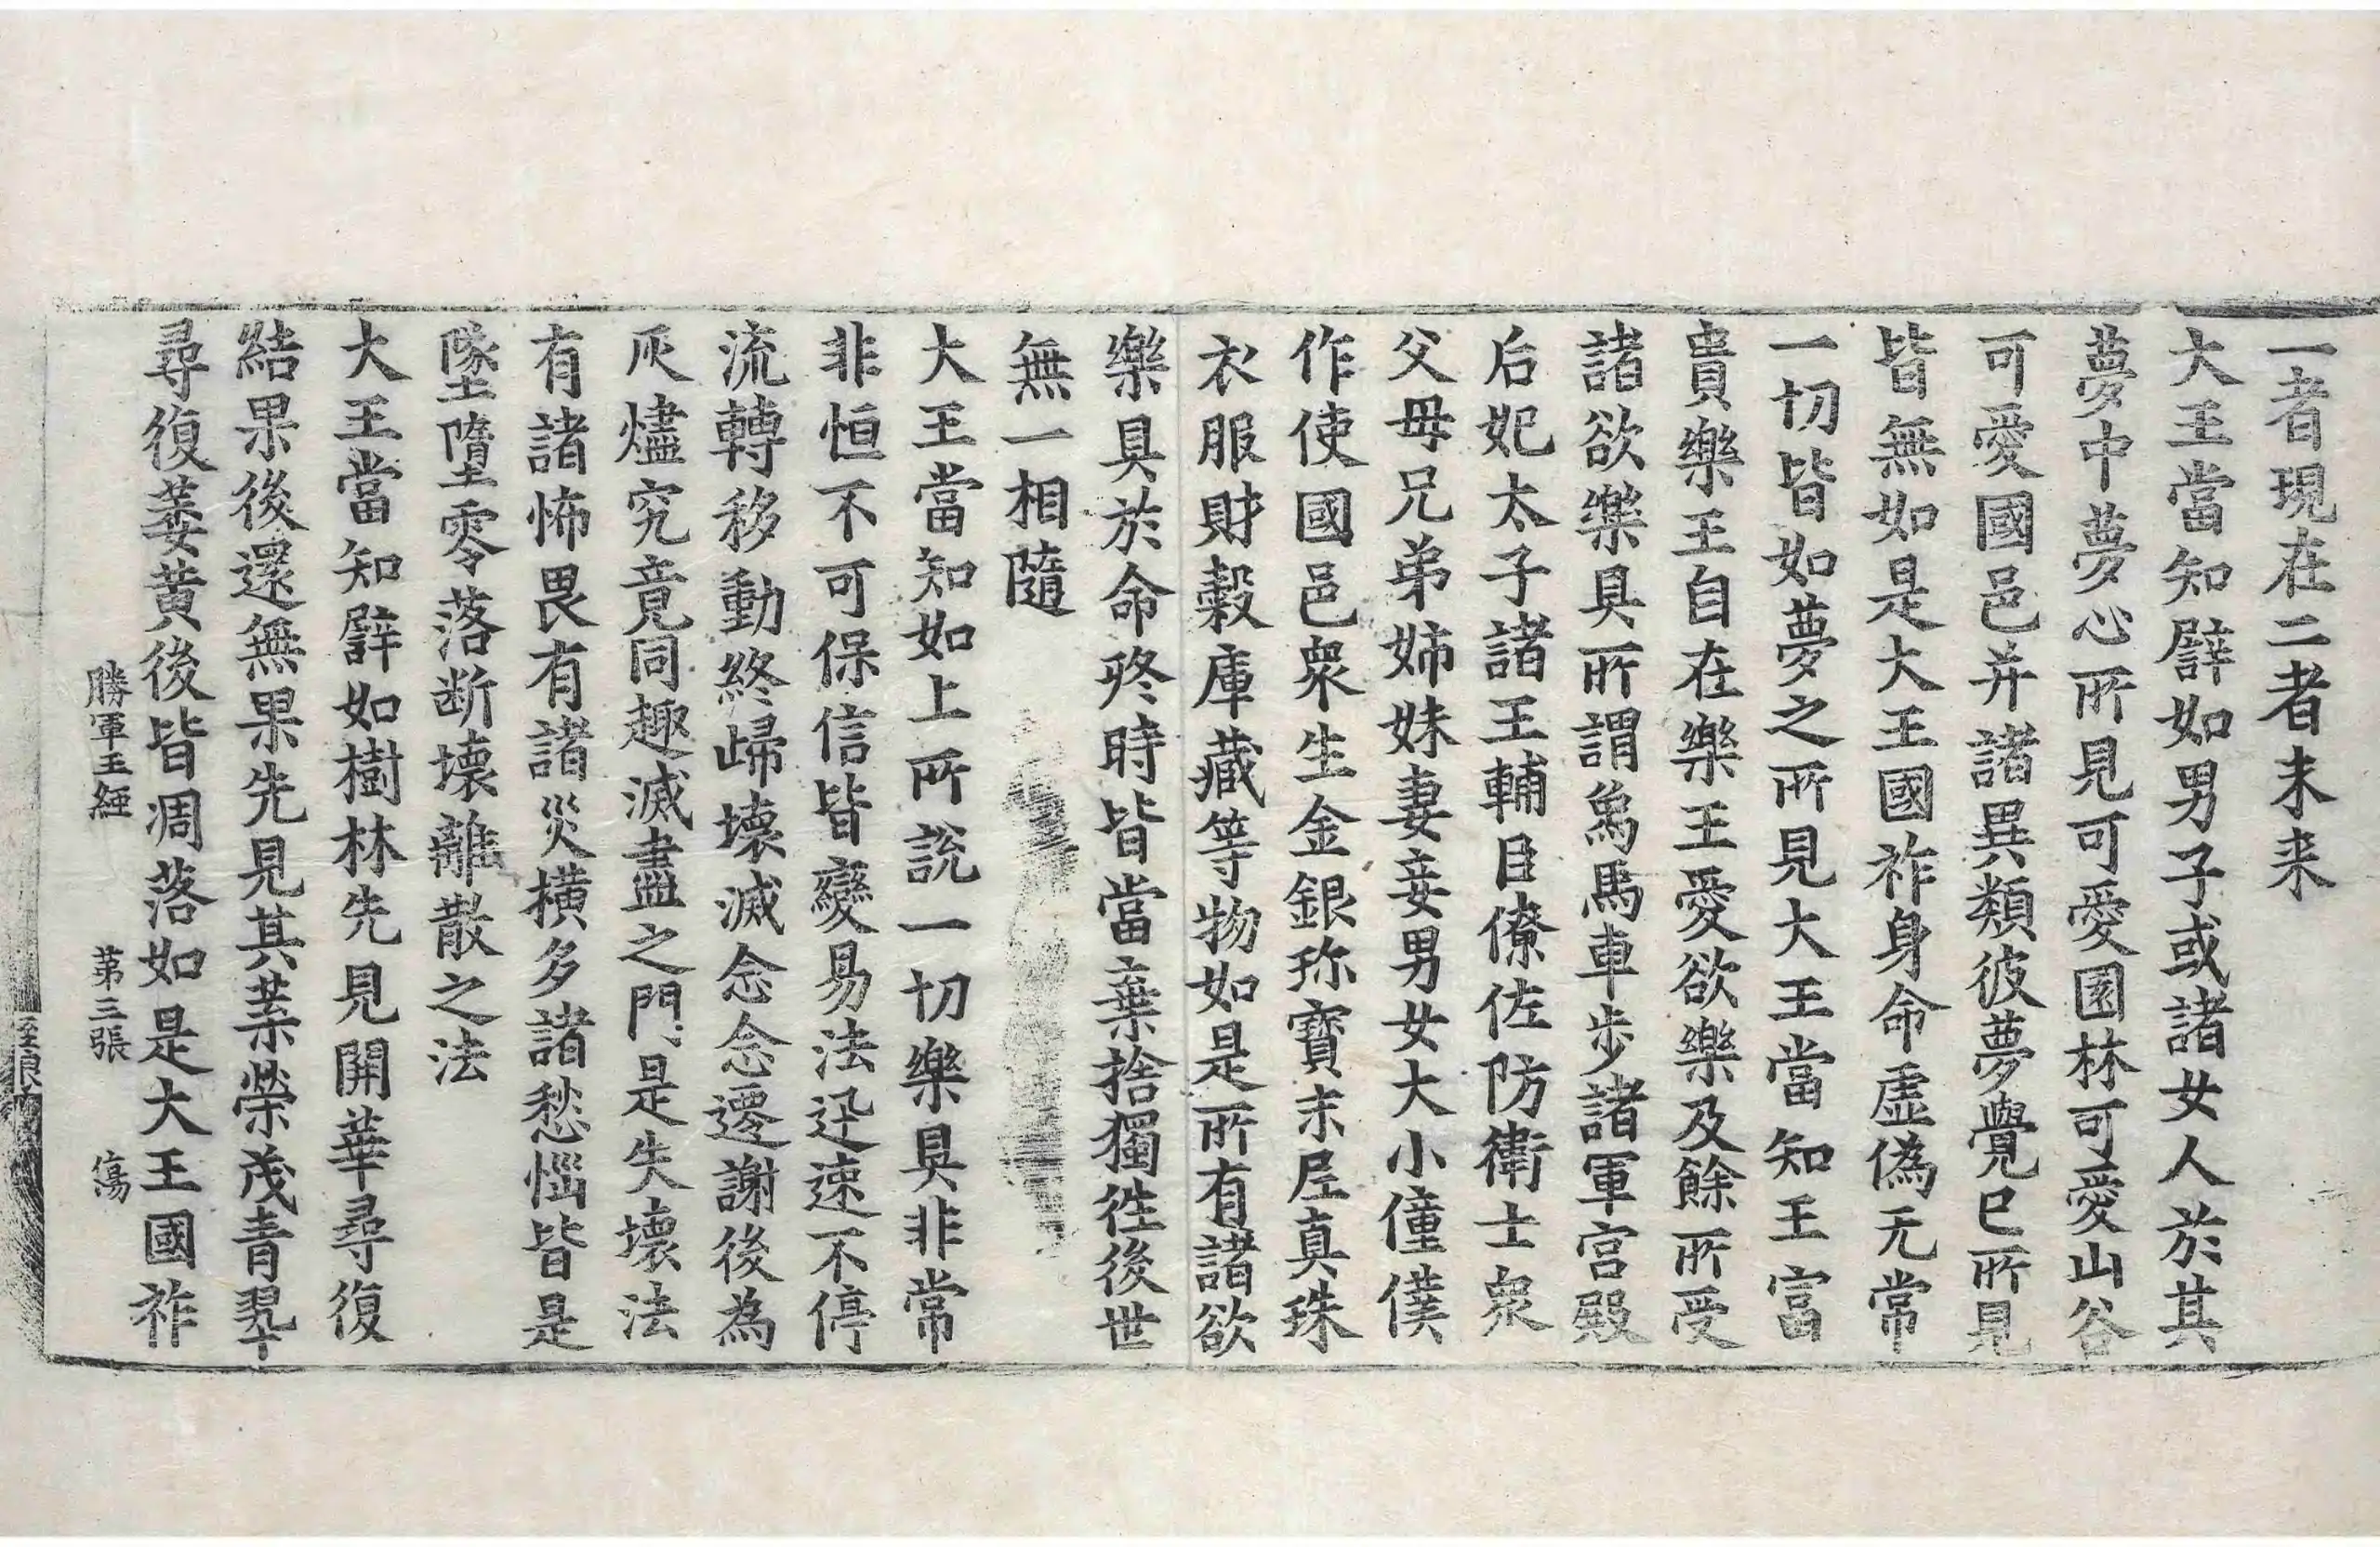 一者現在二者未来
大王當知譬如男子或諸女人於其
夢中夢心所見可愛園林可愛山谷
可愛國邑并諸異類彼夢覺已所見
皆無如是大王國祚身命虛偽无常
一切皆如夢之所見大王當知王富
貴樂王自在樂王愛欲樂及餘所受
諸欲樂具所謂象馬車步諸軍宮殿
后妃太子諸王輔臣僚佐防衛士衆
父母兄弟姉妹妻妾男女大小僮僕
作使國邑衆生金銀珎寶末尼真珠
衣服財穀庫藏等物如是所有諸欲
樂具於命終時皆當棄捨獨往後世
無一相隨
大王當知如上所說一切樂具非常
非恒不可保信皆變易法迅速不停
流轉移動終歸壞滅念念遷謝後為
灰燼究竟同趣滅盡之門是失壞法
有諸怖畏有諸災橫多諸愁惱皆是
墜墮零落断壞離散之法
大王當知譬如樹林先見開華尋復
結果後還無果先見其葉榮茂青翠
尋復萎黄後皆凋落如是大王國祚
勝軍王經 第三張 傷